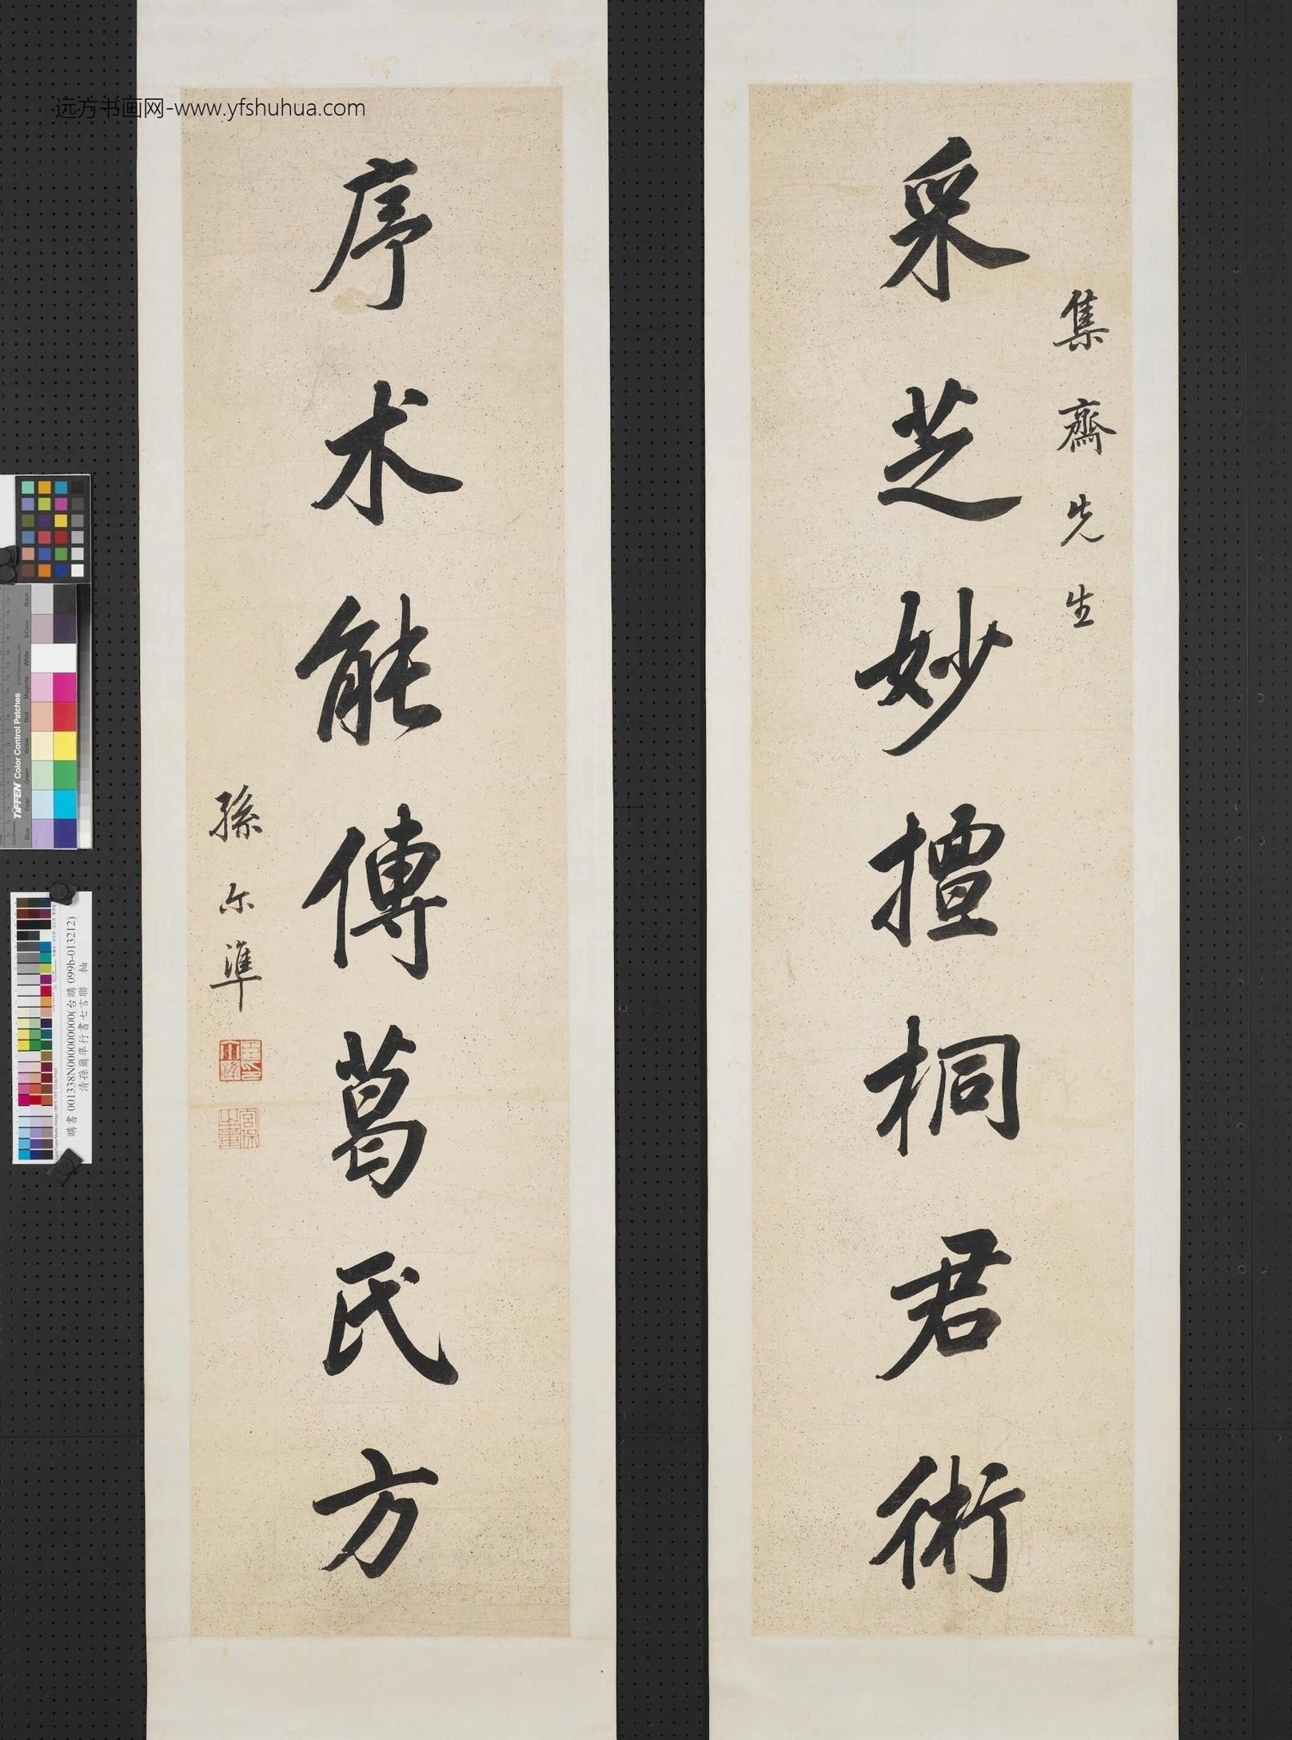 远方书画网-www.yfshuhua.com
集齋先生
采芝妙擅桐君術
序术能傳葛氏方
孫尔準
TIFFEN Color Control Patches
購書 001338N000000000(台購 099b-013212)
清孫爾準行書七言聯 軸